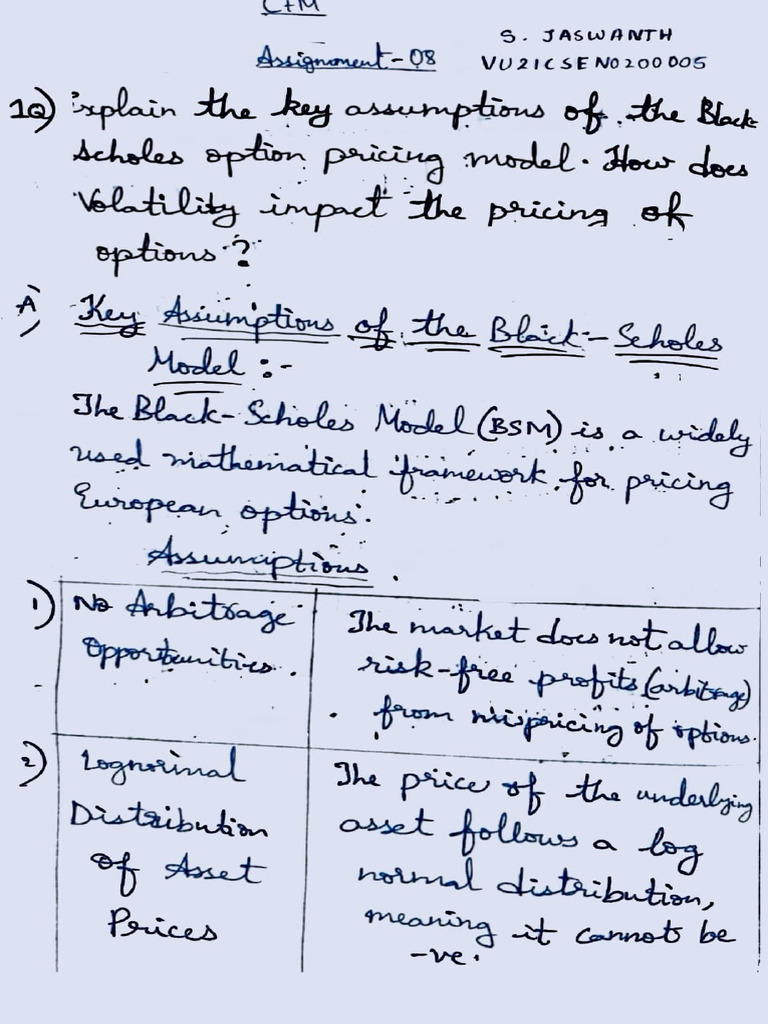 CFM
Assignment-08
S. JASWANTH
VU21CSEN0200005
1Q) Explain the key assumptions of the Black
Scholes option pricing model. How does
Volatility impact the pricing of
options?
A) Key Assumptions of the Black-Scholes
Model :-
The Black-Scholes Model (BSM) is a widely
used mathematical framework for pricing
European options.
Assumptions
1) No Arbitrage
Opportunities.
The market does not allow
risk-free profits (arbitrage)
from mispricing of options.
2) Lognormal
Distribution
of Asset
Prices
The price of the underlying
asset follows a log
normal distribution,
meaning it cannot be
-ve.